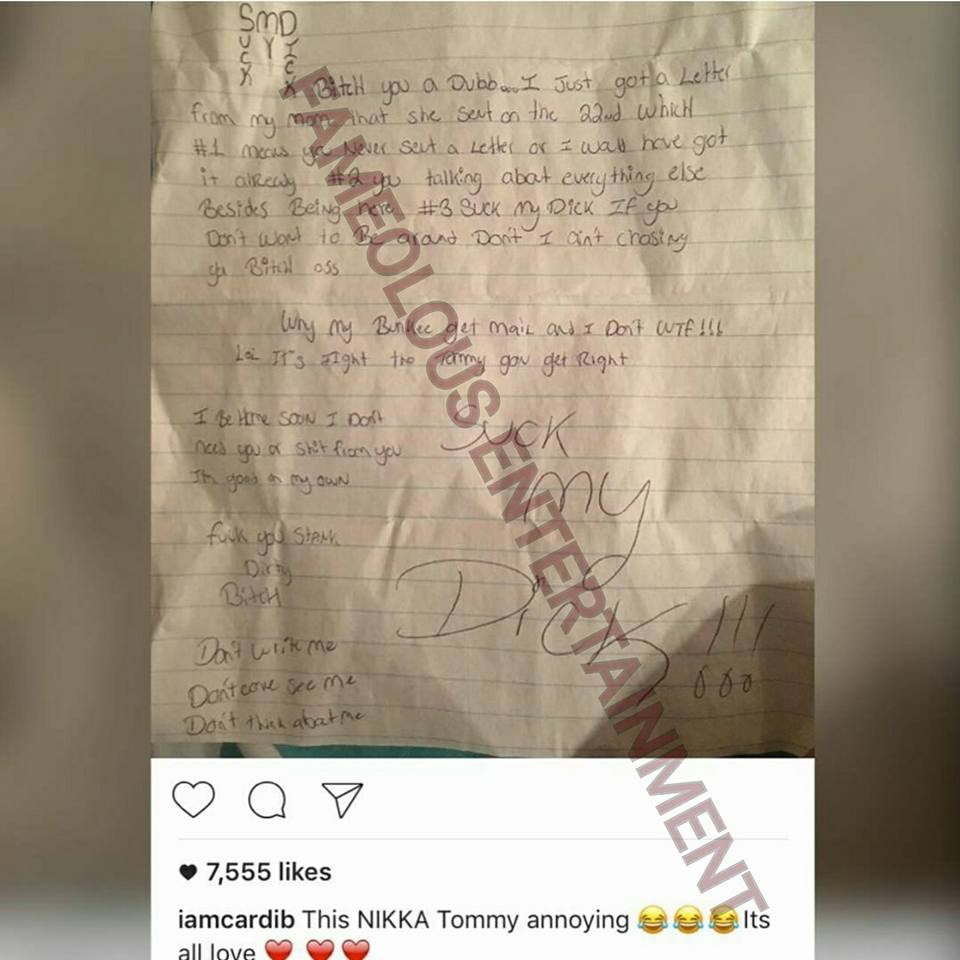 SMD
U Y I
C C
K K Bitch you a Dubb... I Just got a Letter
from my mom that she sent on the 22nd which
#1 means ya Never sent a Letter or I wall have got
it already #2 you talking abat everything else
Besides Being here #3 Suck my Dick If you
Don't want to Be arand Don't I ain't chasing
ya Bitch ass
Why my Bunkee get mail and I Don't WTF!!!
It's Right tho Tommy gon get Right
I Be Home Soon I Don't
need you or Shit from you
I'm good on my own
Suck
my
Dick !!!
fuck you Stank
Dirty
Bitch
Don't write me
Don't come see me
Don't think abat me
FAMEOLOUS ENTERTAINMENT
7,555 likes
iamcardib This NIKKA Tommy annoying 😂😂😂Its
all love ❤️ ❤️ ❤️